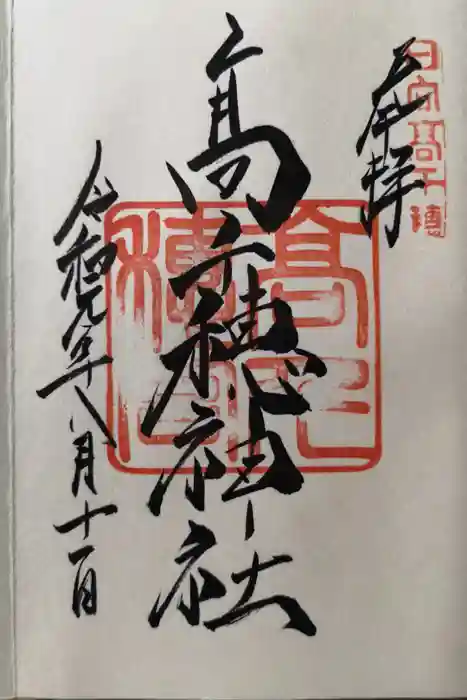 奉拝
日向高千穂
高千穂神社
令和元年八月十一日